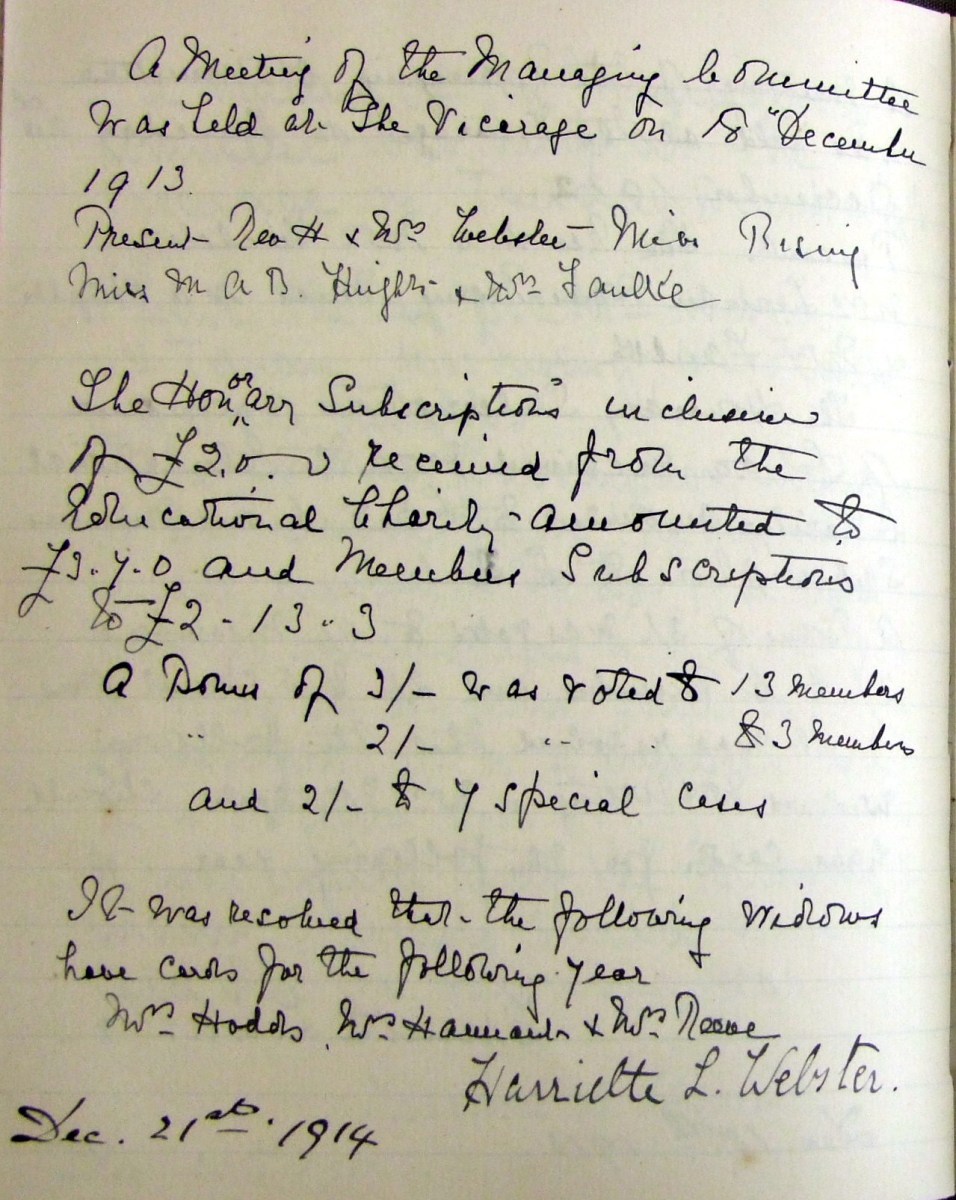 A Meeting of the Managing Committee
was held at The Vicarage on 18" December
1913.
Present Rev H & Mrs Webster Miss Rising
Miss M A B. Hught & Mrs Faulke
The Hon"or"ary Subscriptions inclusive
of £2.0.0 received from the
Educational Charity amounted to
£3.7.0 and Members Subscriptions
to £2-13-3
A Bonus of 3/- was voted to 13 members
" 2/- " to 3 members
and 2/- to 7 special cases
It was resolved that the following widows
have cards for the following year
Mrs Hodds, Mrs Hannant & Mrs Reeve
Harriette L. Webster.
Dec. 21st. 1914